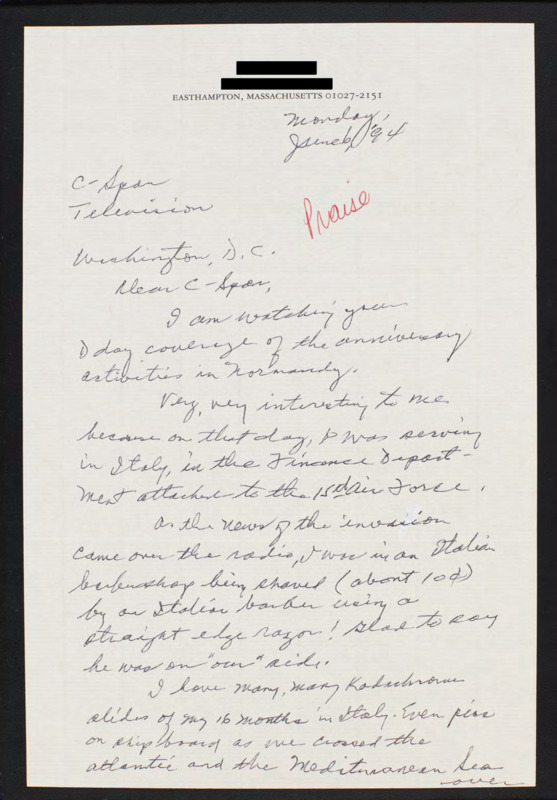 EASTHAMPTON, MASSACHUSETTS 01027-2151
Monday,
June 6, '94
C-Span
Television
Praise
Washington, D.C.
Dear C-Span,
I am watching your
D day coverage of the anniversary
activities in Normandy.
Very, very interesting to me
because on that day, I was serving
in Italy, in the Finance Depart-
ment attached to the 15th Air Force.
As the news of the invasion
came over the radio, I was in an Italian
barbershop being shaved (about 10¢)
by an Italian barber using a
straight edge razor! Glad to say
he was on "our" side.
I have many, many Kodachrome
slides of my 16 months in Italy. Even
on shipboard as we crossed the
Atlantic and the Mediterranean Sea
-over